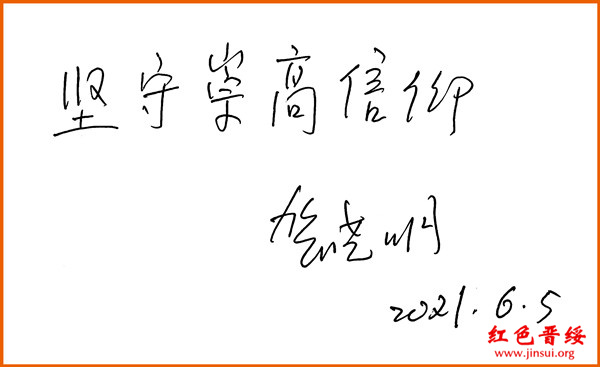 坚守崇高信仰
贺晓明
2021.6.5
红色晋绥
www.jinsui.org